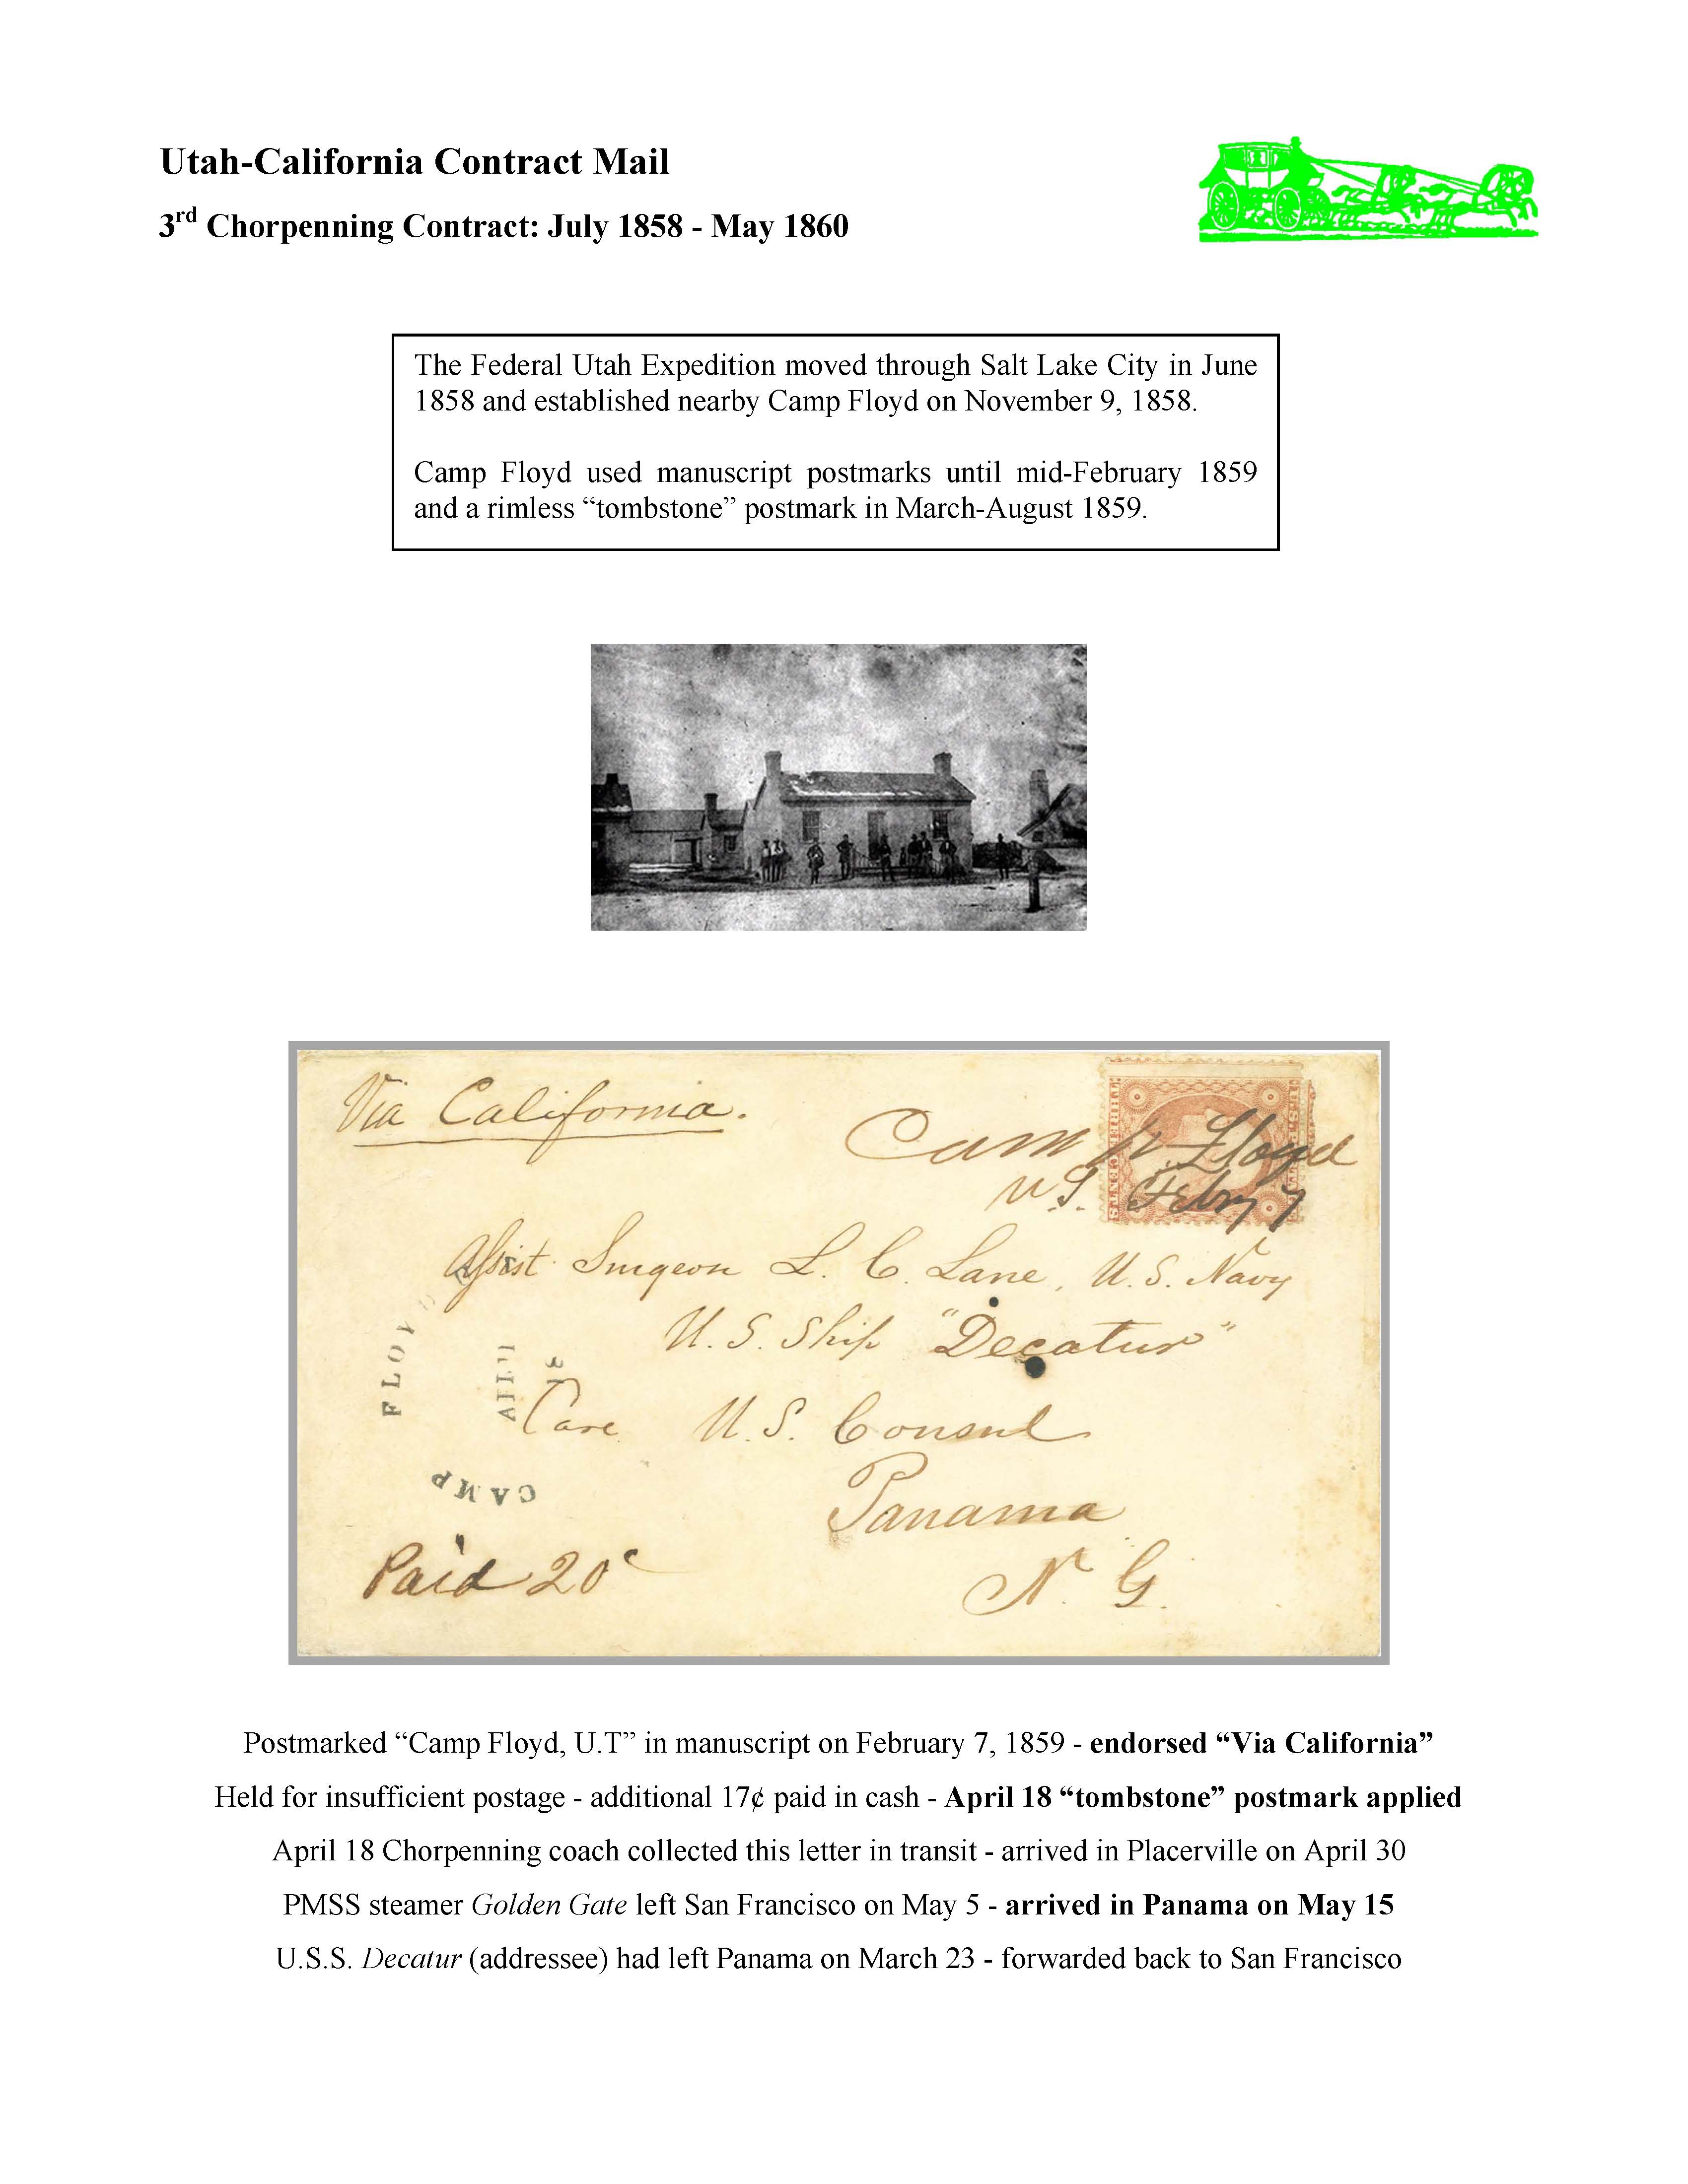 Utah-California Contract Mail
3rd Chorpenning Contract: July 1858 - May 1860
The Federal Utah Expedition moved through Salt Lake City in June
1858 and established nearby Camp Floyd on November 9, 1858.
Camp Floyd used manuscript postmarks until mid-February 1859
and a rimless “tombstone” postmark in March-August 1859.
Via California.
Camp Floyd
U.T. Febry 7
Assist Surgeon L. C. Lane, U. S. Navy
U. S. Ship "Decatur"
Care U. S. Consul
Panama
N. G.
CAMP FLOYD
18
Paid 20c
Postmarked “Camp Floyd, U.T” in manuscript on February 7, 1859 - endorsed “Via California”
Held for insufficient postage - additional 17¢ paid in cash - April 18 “tombstone” postmark applied
April 18 Chorpenning coach collected this letter in transit - arrived in Placerville on April 30
PMSS steamer Golden Gate left San Francisco on May 5 - arrived in Panama on May 15
U.S.S. Decatur (addressee) had left Panama on March 23 - forwarded back to San Francisco